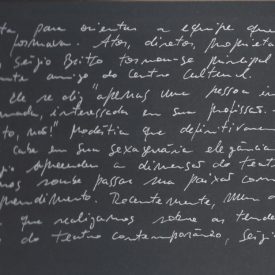 ta para orientar a equipe que
formava. Ator, diretor, proprietá
, Sérgio Britto tornou-se principal
nte amigo do Centro Cultural.
Ele se diz "apenas uma pessoa in
mada, interessada em sua profissão.
to, nós!" prodetia que definitivam
cabe em sua sexagenária elegância
gio apreendeu a dimensão do teat
mos soube passar sua paixão com
preendimento. Recentemente, num
que realizamos sobre as tendê
do teatro contemporâneo, Sérgi